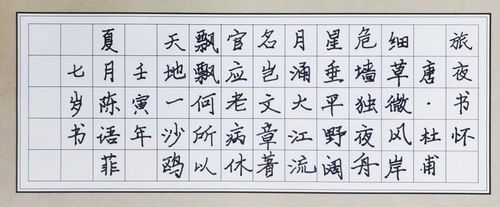 旅夜书怀
唐·杜甫
细草微风岸
危墙独夜舟
星垂平野阔
月涌大江流
名岂文章著
官应老病休
飘飘何所以
天地一沙鸥
壬寅年
夏月陈语菲
七岁书